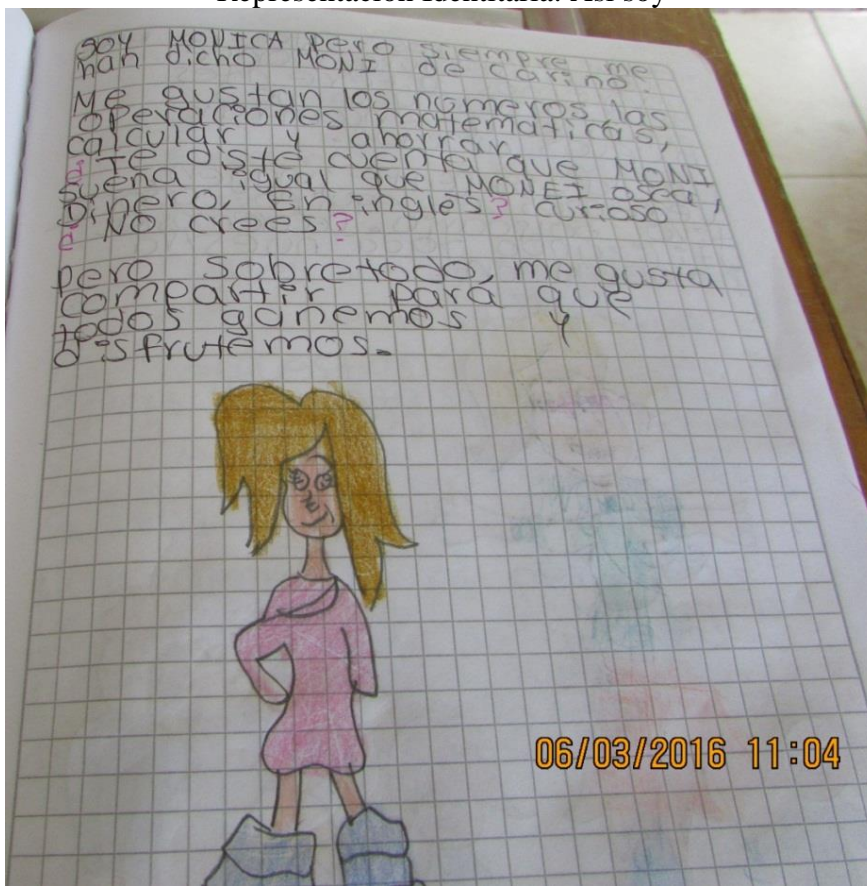 Representación Identitaria: Así soy
SOY MONICA pero siempre me
han dicho MONI de cariño.
Me gustan los números, las
operaciones matematicas,
calcular y ahorrar.
¿Te diste cuenta que MONI
suena igual que MONEI osea,
Dinero, En ingles? curioso
¿No crees?
pero sobretodo, me gusta
compartir para que
todos ganemos y
disfrutemos.
06/03/2016 11:04